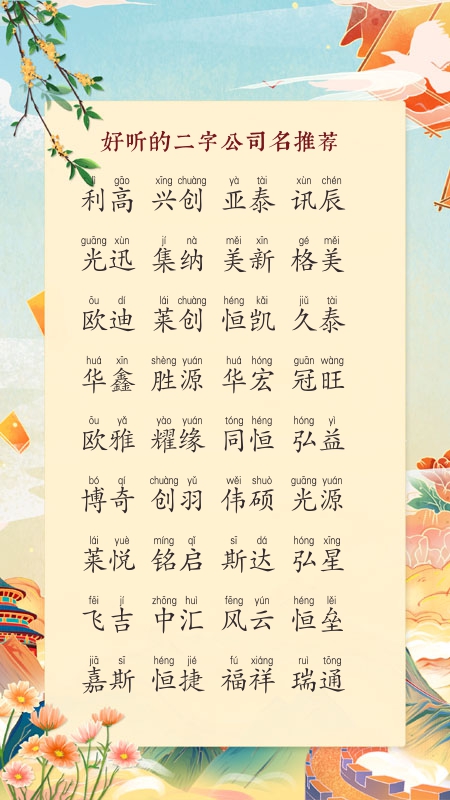 好听的二字公司名推荐
lì gāo xīng chuàng yà tài xùn chén
利高 兴创 亚泰 讯辰
guāng xùn jí nà měi xīn gé měi
光迅 集纳 美新 格美
ōu dí lái chuàng héng kǎi jiǔ tài
欧迪 莱创 恒凯 久泰
huá xīn shèng yuán huá hóng guān wàng
华鑫 胜源 华宏 冠旺
ōu yǎ yào yuán tóng héng hóng yì
欧雅 耀缘 同恒 弘益
bó qí chuàng yǔ wěi shuò guāng yuán
博奇 创羽 伟硕 光源
lái yuè míng qǐ sī dá hóng xīng
莱悦 铭启 斯达 弘星
fēi jí zhōng huì fēng yún héng lěi
飞吉 中汇 风云 恒垒
jiā sī héng jié fú xiáng ruì tōng
嘉斯 恒捷 福祥 瑞通